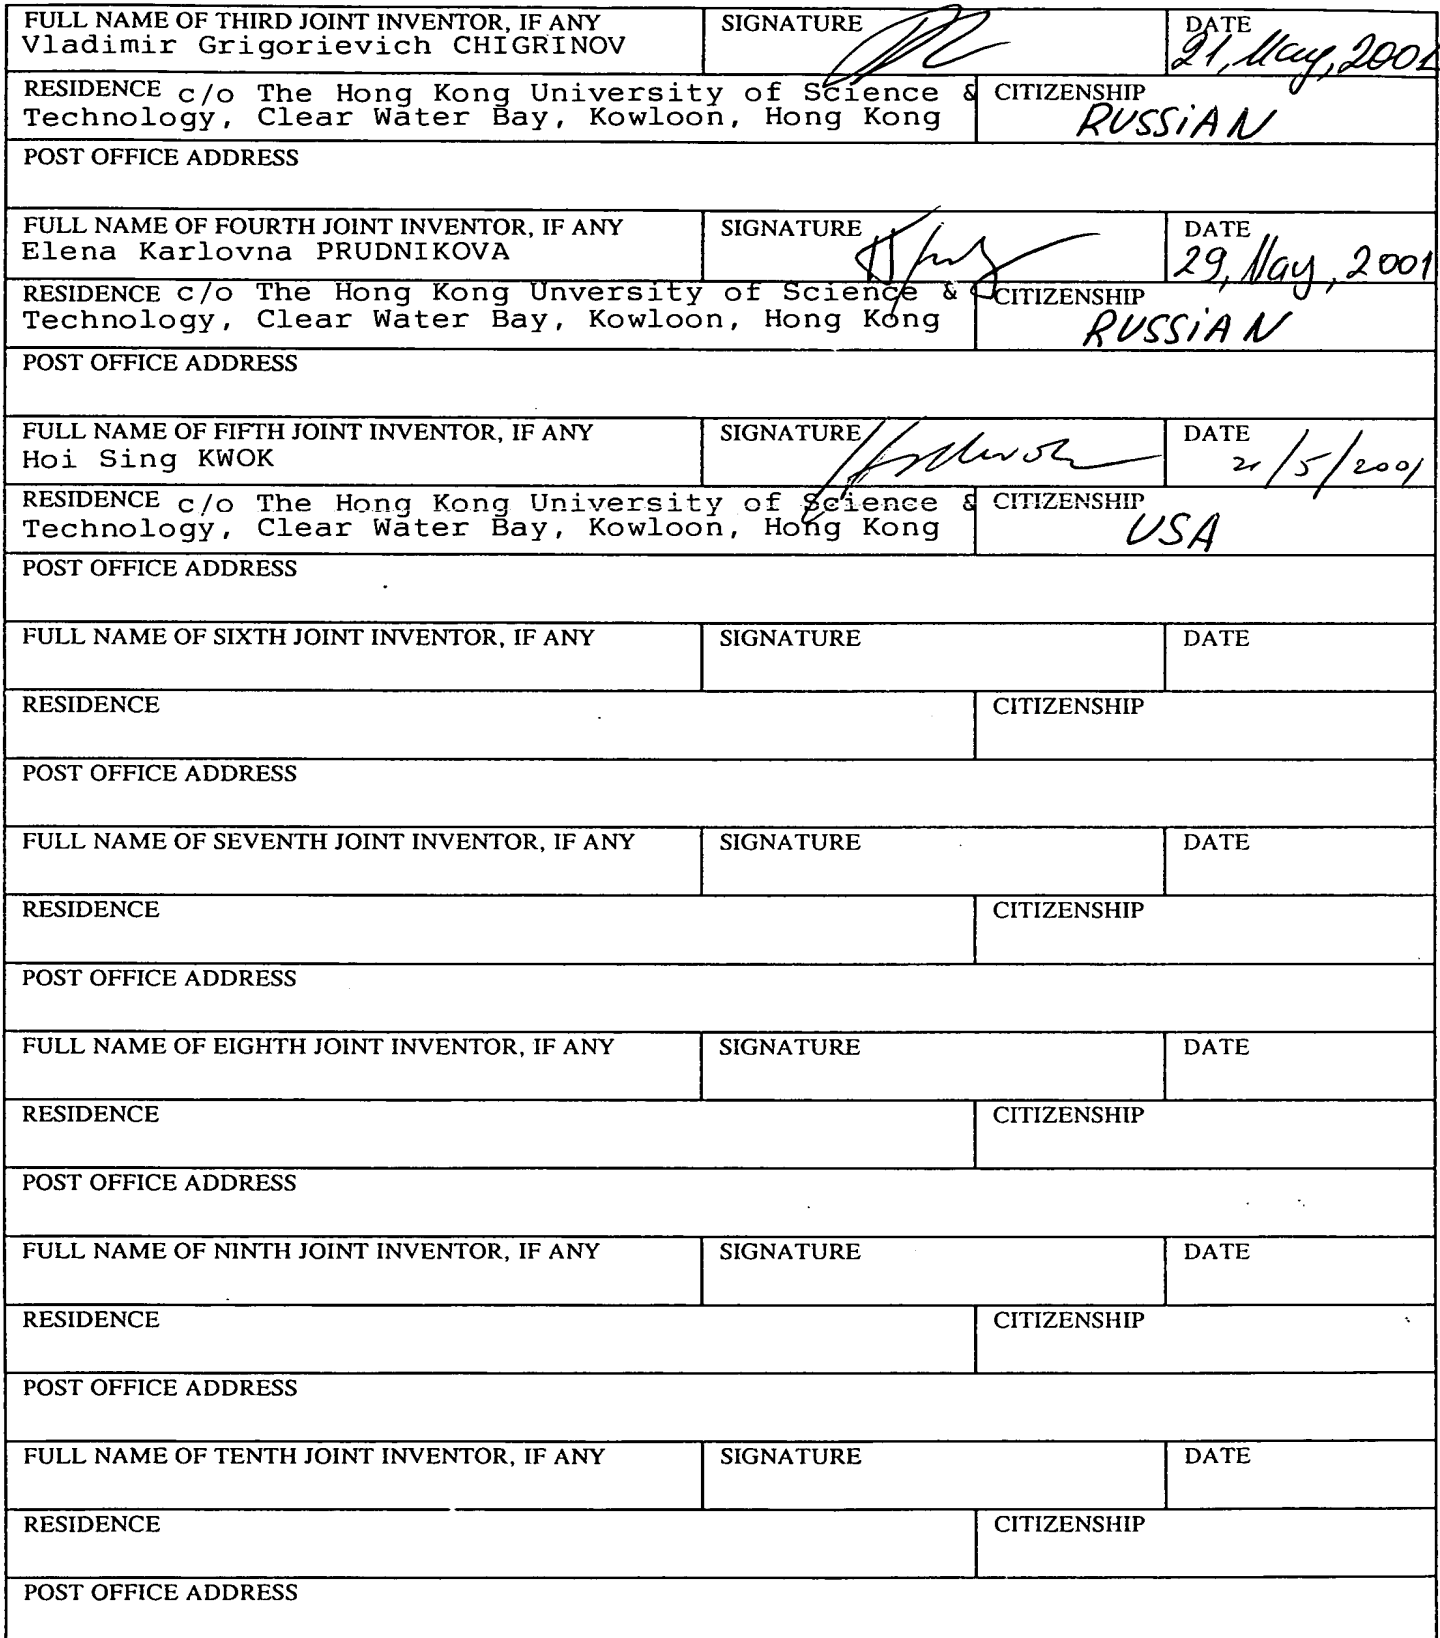 FULL NAME OF THIRD JOINT INVENTOR, IF ANY SIGNATURE DATE
Vladimir Grigorievich CHIGRINOV 21, May, 2001
RESIDENCE c/o The Hong Kong University of Science & CITIZENSHIP
Technology, Clear Water Bay, Kowloon, Hong Kong RUSSiAN
POST OFFICE ADDRESS
FULL NAME OF FOURTH JOINT INVENTOR, IF ANY SIGNATURE DATE
Elena Karlovna PRUDNIKOVA 29, May, 2001
RESIDENCE c/o The Hong Kong Unversity of Science & CITIZENSHIP
Technology, Clear Water Bay, Kowloon, Hong Kong RUSSiAN
POST OFFICE ADDRESS
FULL NAME OF FIFTH JOINT INVENTOR, IF ANY SIGNATURE DATE
Hoi Sing KWOK 21/5/2001
RESIDENCE c/o The Hong Kong University of Science & CITIZENSHIP
Technology, Clear Water Bay, Kowloon, Hong Kong USA
POST OFFICE ADDRESS
FULL NAME OF SIXTH JOINT INVENTOR, IF ANY SIGNATURE DATE
RESIDENCE CITIZENSHIP
POST OFFICE ADDRESS
FULL NAME OF SEVENTH JOINT INVENTOR, IF ANY SIGNATURE DATE
RESIDENCE CITIZENSHIP
POST OFFICE ADDRESS
FULL NAME OF EIGHTH JOINT INVENTOR, IF ANY SIGNATURE DATE
RESIDENCE CITIZENSHIP
POST OFFICE ADDRESS
FULL NAME OF NINTH JOINT INVENTOR, IF ANY SIGNATURE DATE
RESIDENCE CITIZENSHIP
POST OFFICE ADDRESS
FULL NAME OF TENTH JOINT INVENTOR, IF ANY SIGNATURE DATE
RESIDENCE CITIZENSHIP
POST OFFICE ADDRESS